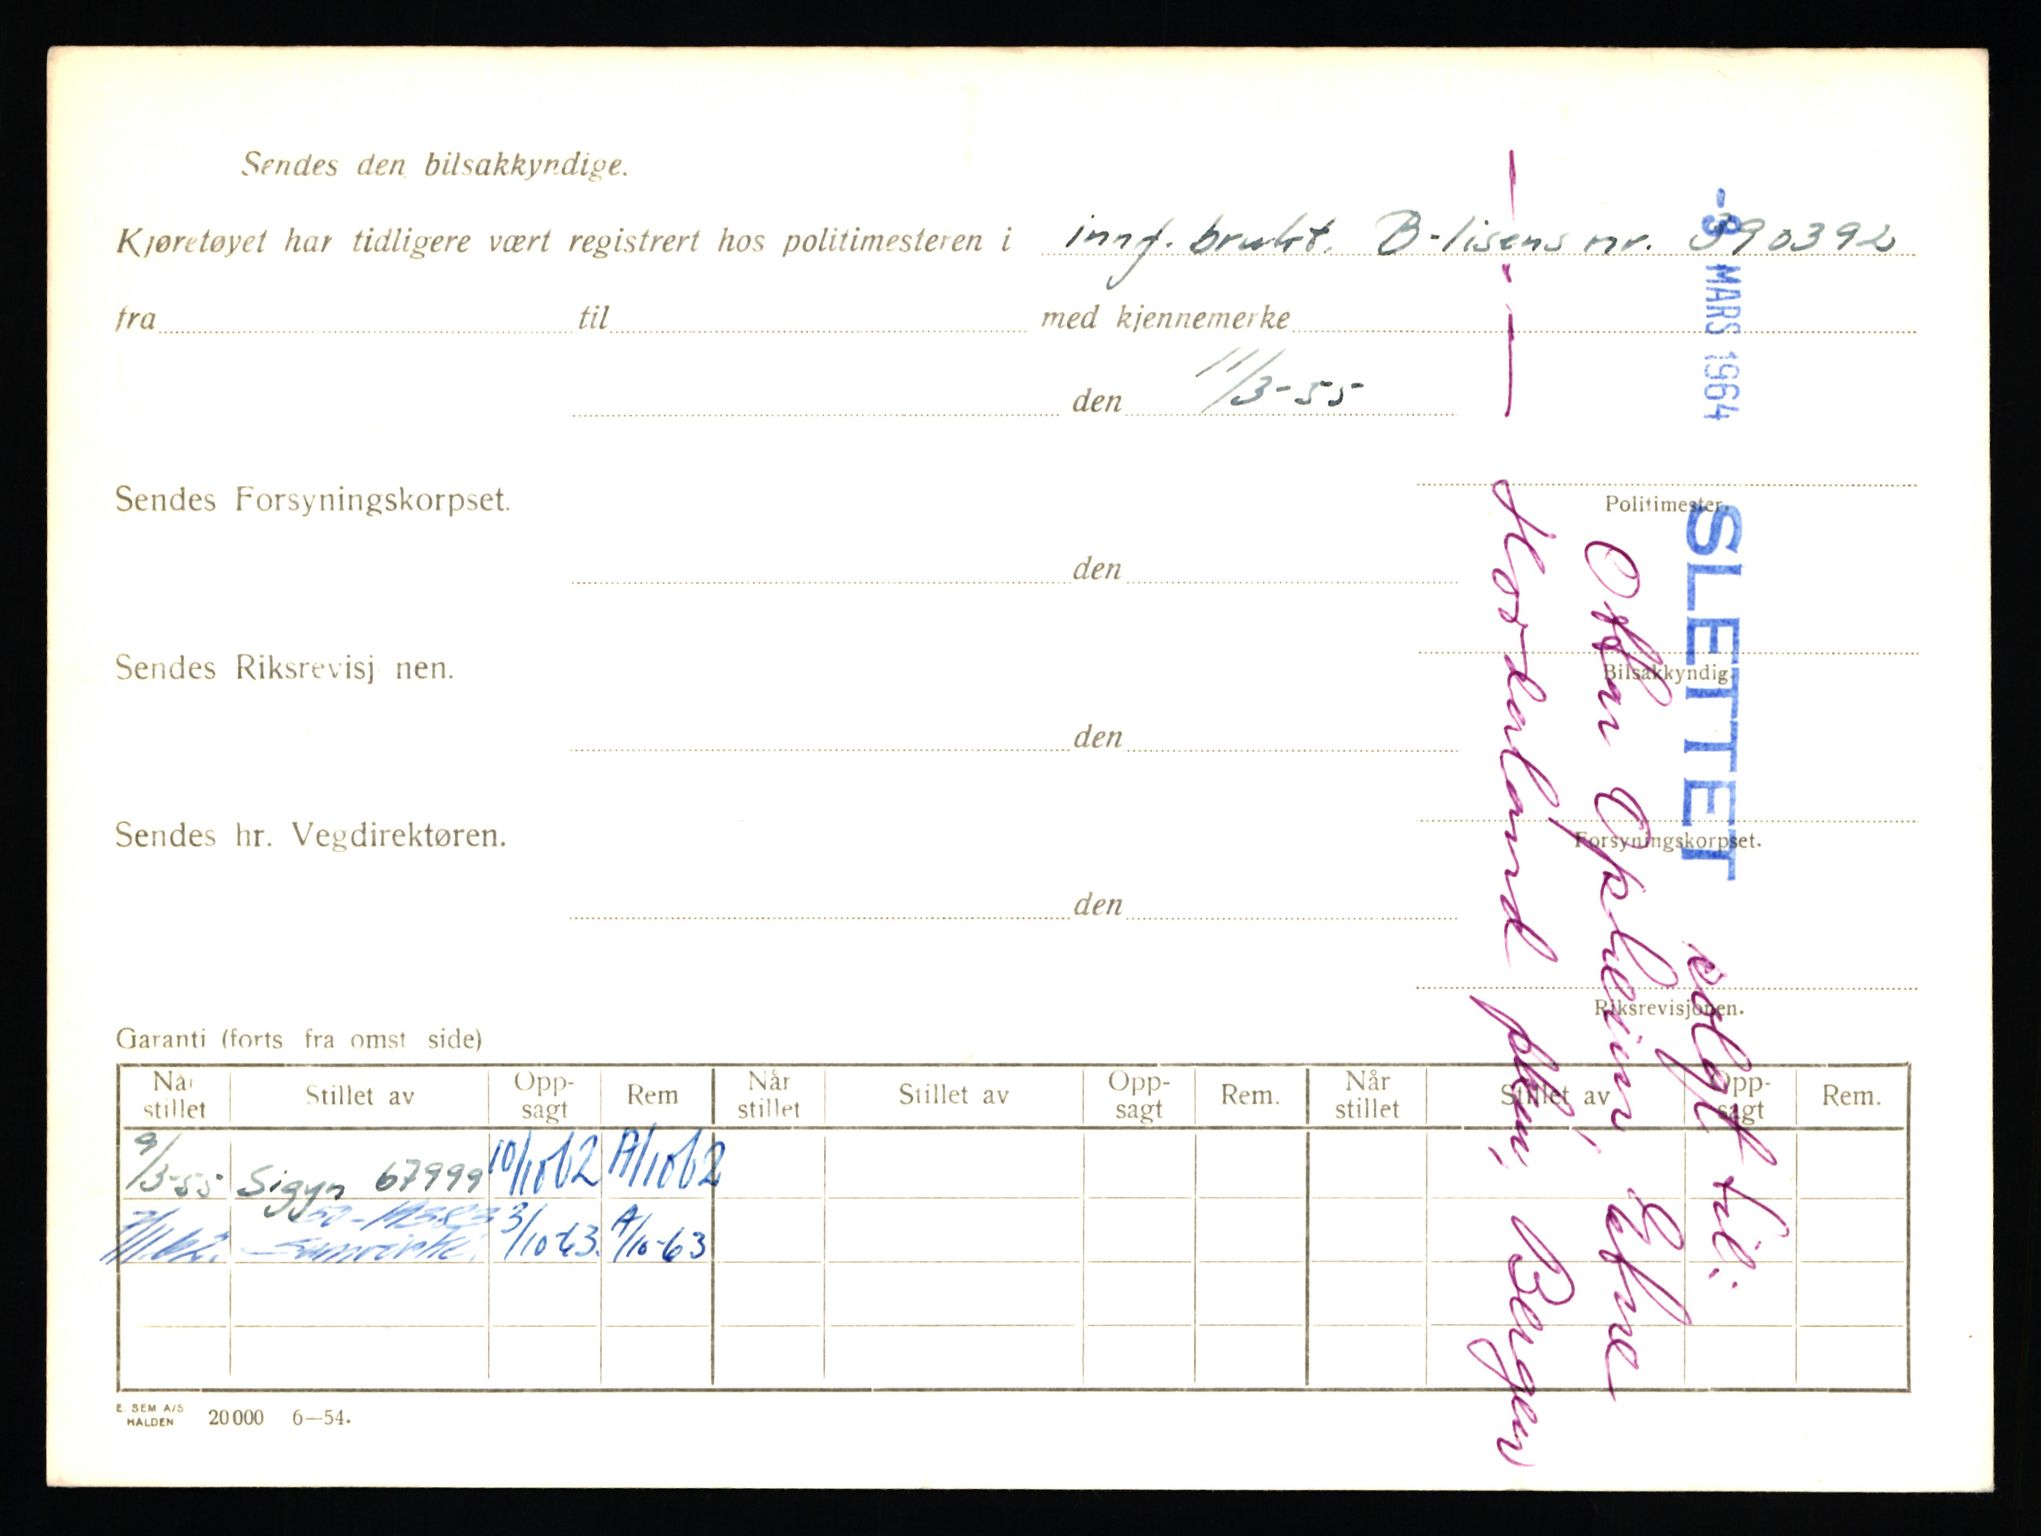 Sendes den bilsakkyndige.
Kjøretøyet har tidligere vært registrert hos politimesteren i innf. brukt. B-lisens nr. 390392
fra til med kjennemerke
den 11/3-55
Politimester.
Sendes Forsyningskorpset.
den
Bilsakkyndig.
Sendes Riksrevisj nen.
den
Forsyningskorpset.
Sendes hr. Vegdirektøren.
den
Riksrevisjonen.
-9 MARS 1964 SLETTET
solgt til:
Opheim, Etne
Hordaland pkm, Bergen
Garanti (forts fra omst side)
Når stillet Stillet av Opp-sagt Rem Når stillet Stillet av Opp-sagt Rem. Når stillet Stillet av Opp-sagt Rem.
9/3-55 Sigyn 67999 10/10 62 A/10 62
Samvirke. 3/10-63. A/10-63
E. SEM A/S
HALDEN 20000 6—54.